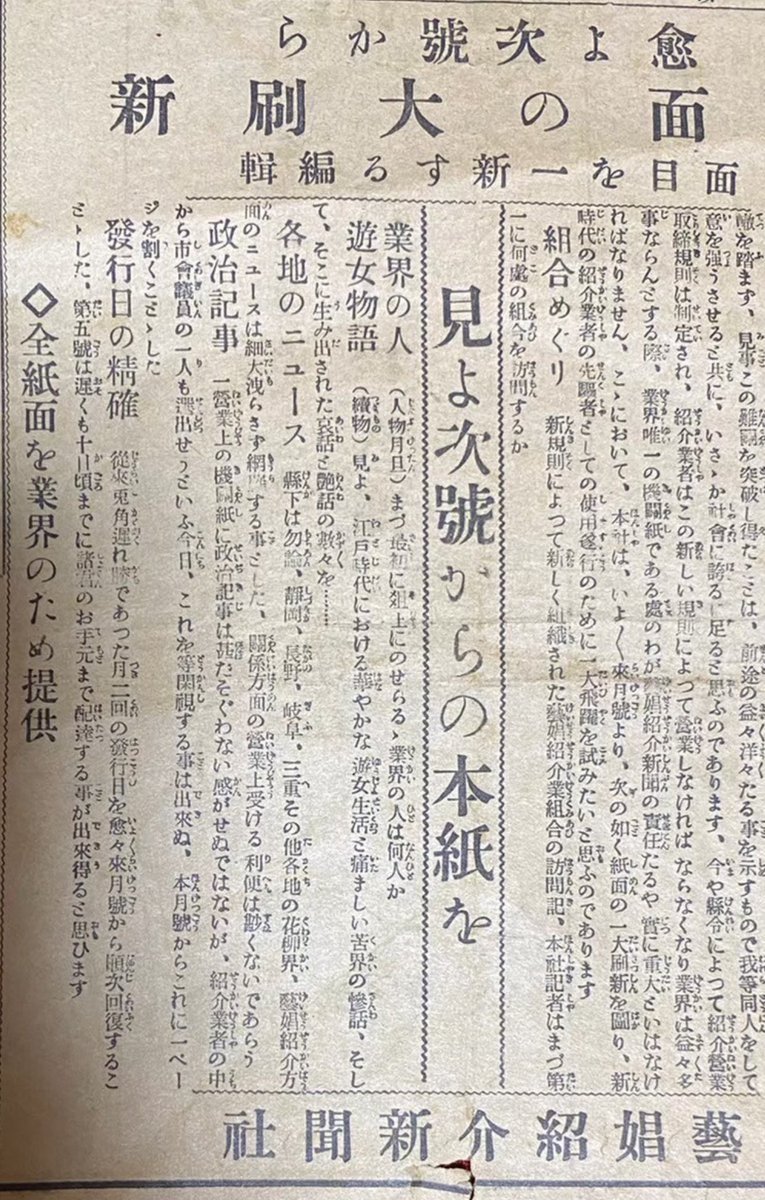 愈よ次號から
面の大刷新
面目を一新する編輯
轍を踏まず、見事この難關を突破し得たことは、前途の益々洋々たる事を示すもので我等同人をして
意を强うさせると共に、いさゝか社會に誇るに足ると思ふのであります、今や縣令によつて紹介營業
取締規則は制定され、紹介業者はこの新しい規則によつて營業しなければならなくなり業界は益々多
事ならんとする際、業界唯一の機關紙である處のわが藝娼紹介新聞の責任たるや實に重大といはなけ
ればなりません、こゝにおいて、本社は、いよ〱來月號より、次の如く紙面の一大刷新を圖り、新
時代の紹介業者の先驅者としての使用遂行のために一大飛躍を試みたいと思ふのであります
組合めぐり 新規則によつて新しく組織された藝娼紹介業組合の訪問記、本社記者はまづ第
一に何處の組合を訪問するか
見よ次號からの本紙を
業界の人 (人物月旦)まづ最初に俎上にのせらるゝ業界の人は何人か
遊女物語 (續物)見よ、江戸時代における華やかな遊女生活と痛ましい苦界の慘話、そし
て、そこに生み出された哀話と艶話の數々を………
各地のニュース 縣下は勿論、靜岡、長野、岐阜、三重その他各地の花柳界、藝娼紹介方
面のニュースは細大洩らさず網羅する事とした、關係方面の營業上受ける利便は尠くないであらう
政治記事 一營業上の機關紙に政治記事は甚だそぐわない感がせぬではないが、紹介業者の中
から市會議員の一人も選出せうといふ今日、これを等閑視する事は出來ぬ、本月號からこれに一ペー
ジを割くことゝした
發行日の精確 從來兎角遲れ勝であつた月二回の發行日を愈々來月號から順次回復するこ
とゝした、第五號は遲くも十日頃までに諸君のお手元まで配達する事が出來得ると思ひます
◇全紙面を業界のため提供
藝娼紹介新聞社